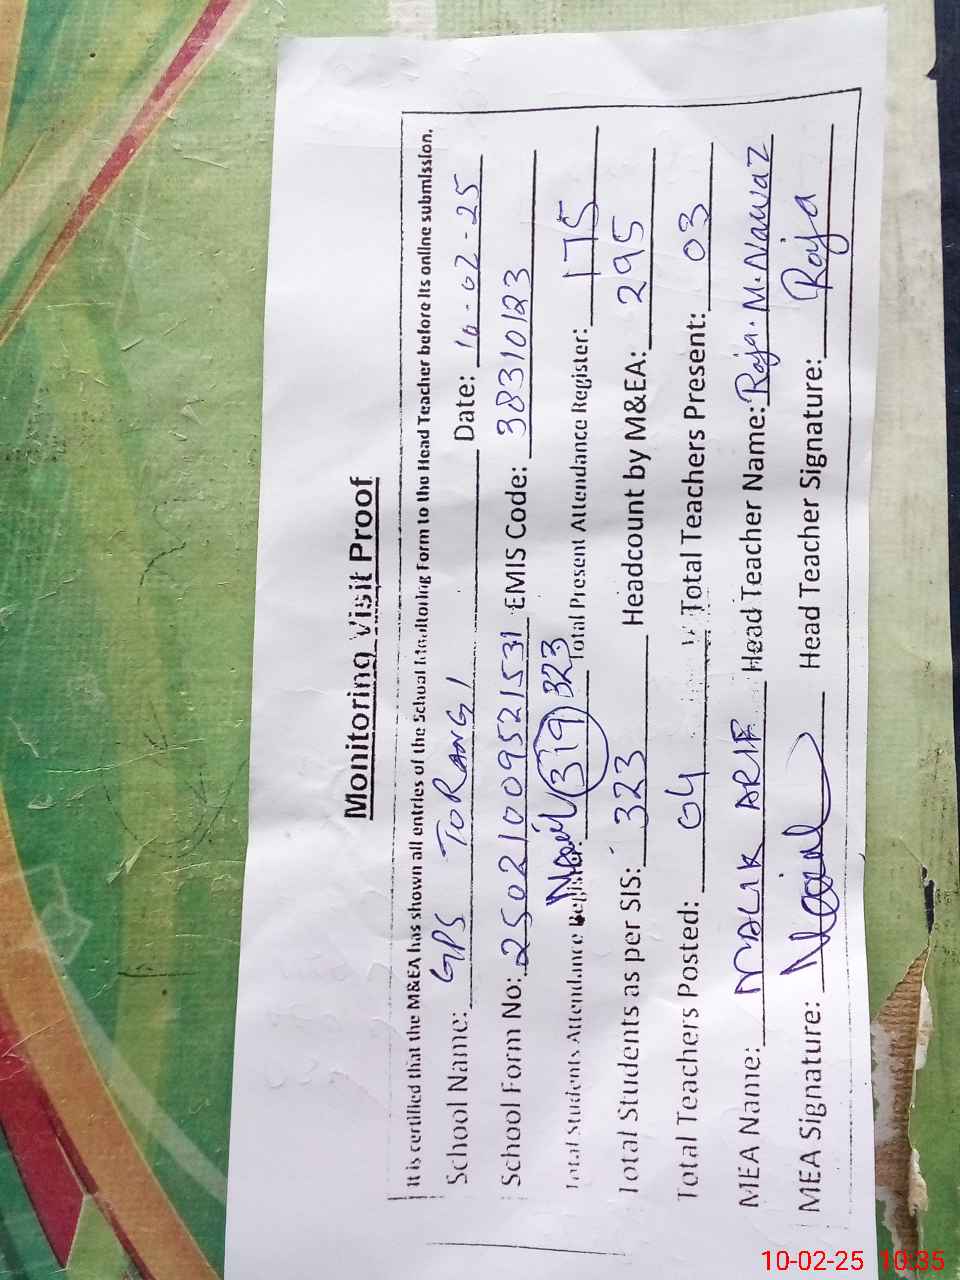 Monitoring Visit Proof
It is certified that the M&EA has shown all entries of the School Monitoring Form to the Head Teacher before its online submission.
School Name: GPS TORANGI Date: 10-02-25
School Form No: 25021009521531 EMIS Code: 38310123
Total Students Attendance Register: 319 323 Total Present Attendance Register: 175
Total Students as per SIS: 323 Headcount by M&EA: 295
Total Teachers Posted: 04 Total Teachers Present: 03
MEA Name: MALIK ARIF Head Teacher Name: Raja. M. Nawaz
MEA Signature: Head Teacher Signature: Raja
10-02-25 10:35